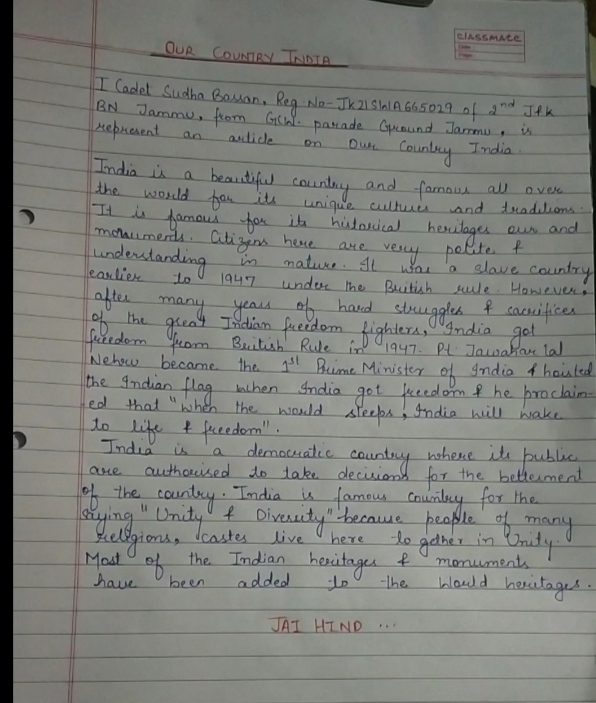 CLASSMATE
OUR COUNTRY INDIA
I Cadet Sudha Bassan, Reg No- JK21SWIA665029 of 2nd J&K
BN Jammu, from GCW. parade Ground Jammu, is
represent an article on Our Country India.
India is a beautiful country and famous all over
the world for its unique cultures and traditions.
It is famous for its historical heritages our and
monuments. Citizens here are very polite &
understanding in nature. It was a slave country
earlier to 1947 under the British rule. However,
after many years of hard struggles & sacrifices
of the great Indian freedom fighters, India got
freedom from British Rule in 1947. Pt. Jawahar lal
Nehru became the 1st Prime Minister of India & hoisted
the Indian flag when India got freedom & he proclaim-
ed that "when the world sleeps, India will wake
to life & freedom".
India is a democratic country where its public
are authorised to take decisions for the betterment
of the country. India is famous country for the
saying "Unity & Diversity" because people of many
religions, castes live here to gether in Unity.
Most of the Indian heritages & monuments
have been added to the World heritages.
JAI HIND ...